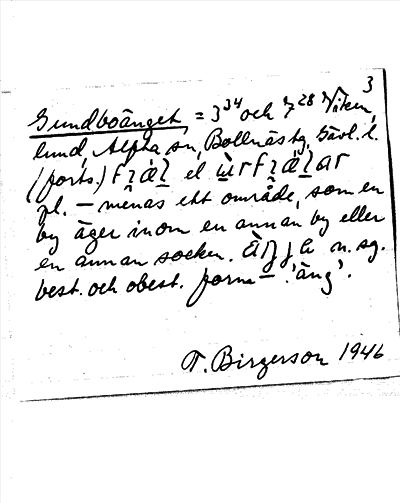 3
Sundboänget, = 3³⁴ och 7²⁸ Viken,
lund, Alfta sn, Bollnäs tg, Gävl. l.
(forts.) el
pl. – menas ett område, som en
by äger inom en annan by eller
en annan socken. n. sg.
best. och obest. form – 'äng'.
T. Birgerson 1946